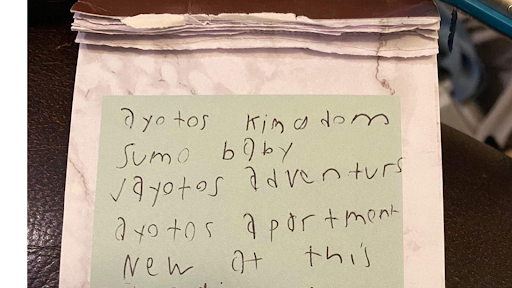 ayotos kingdom
sumo baby
√ayotos adventurs
ayotos apartment
New at this